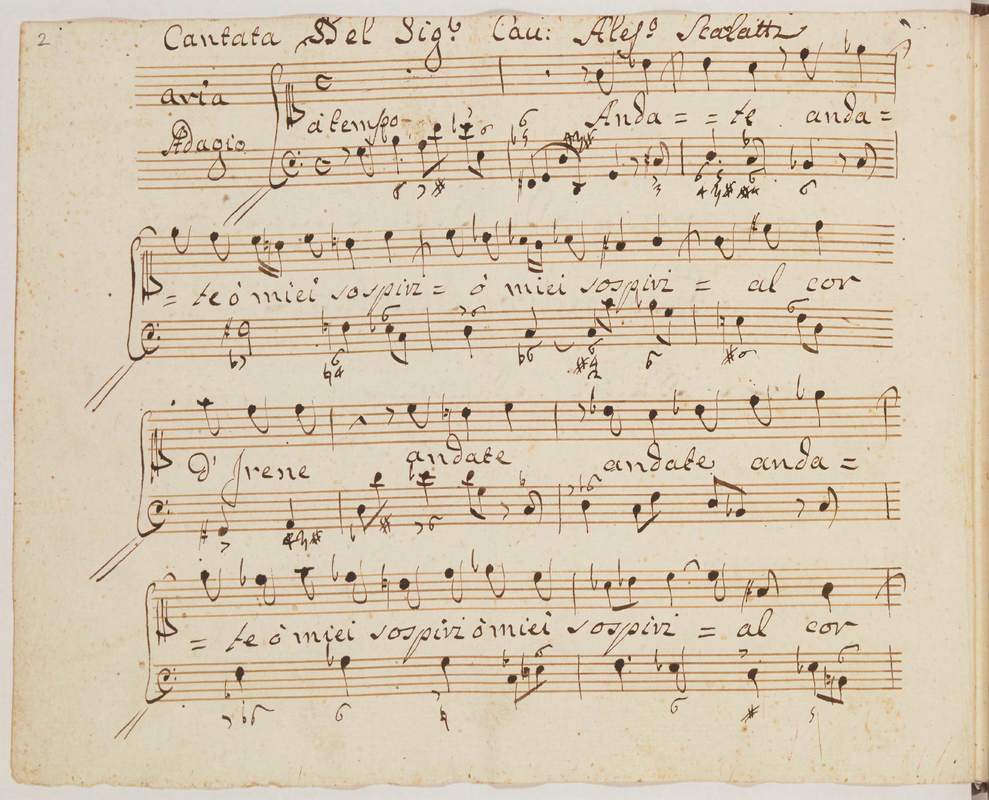 2
Cantata Del Sig.r Cau: Aless.o Scalatti
aria
a tempo
Anda = = te anda =
Adagio
= te ó miei sospiri = ó miei sospiri = al cor
D' Irene andate andate anda =
= te ó miei sospiri ó miei sospiri = al cor